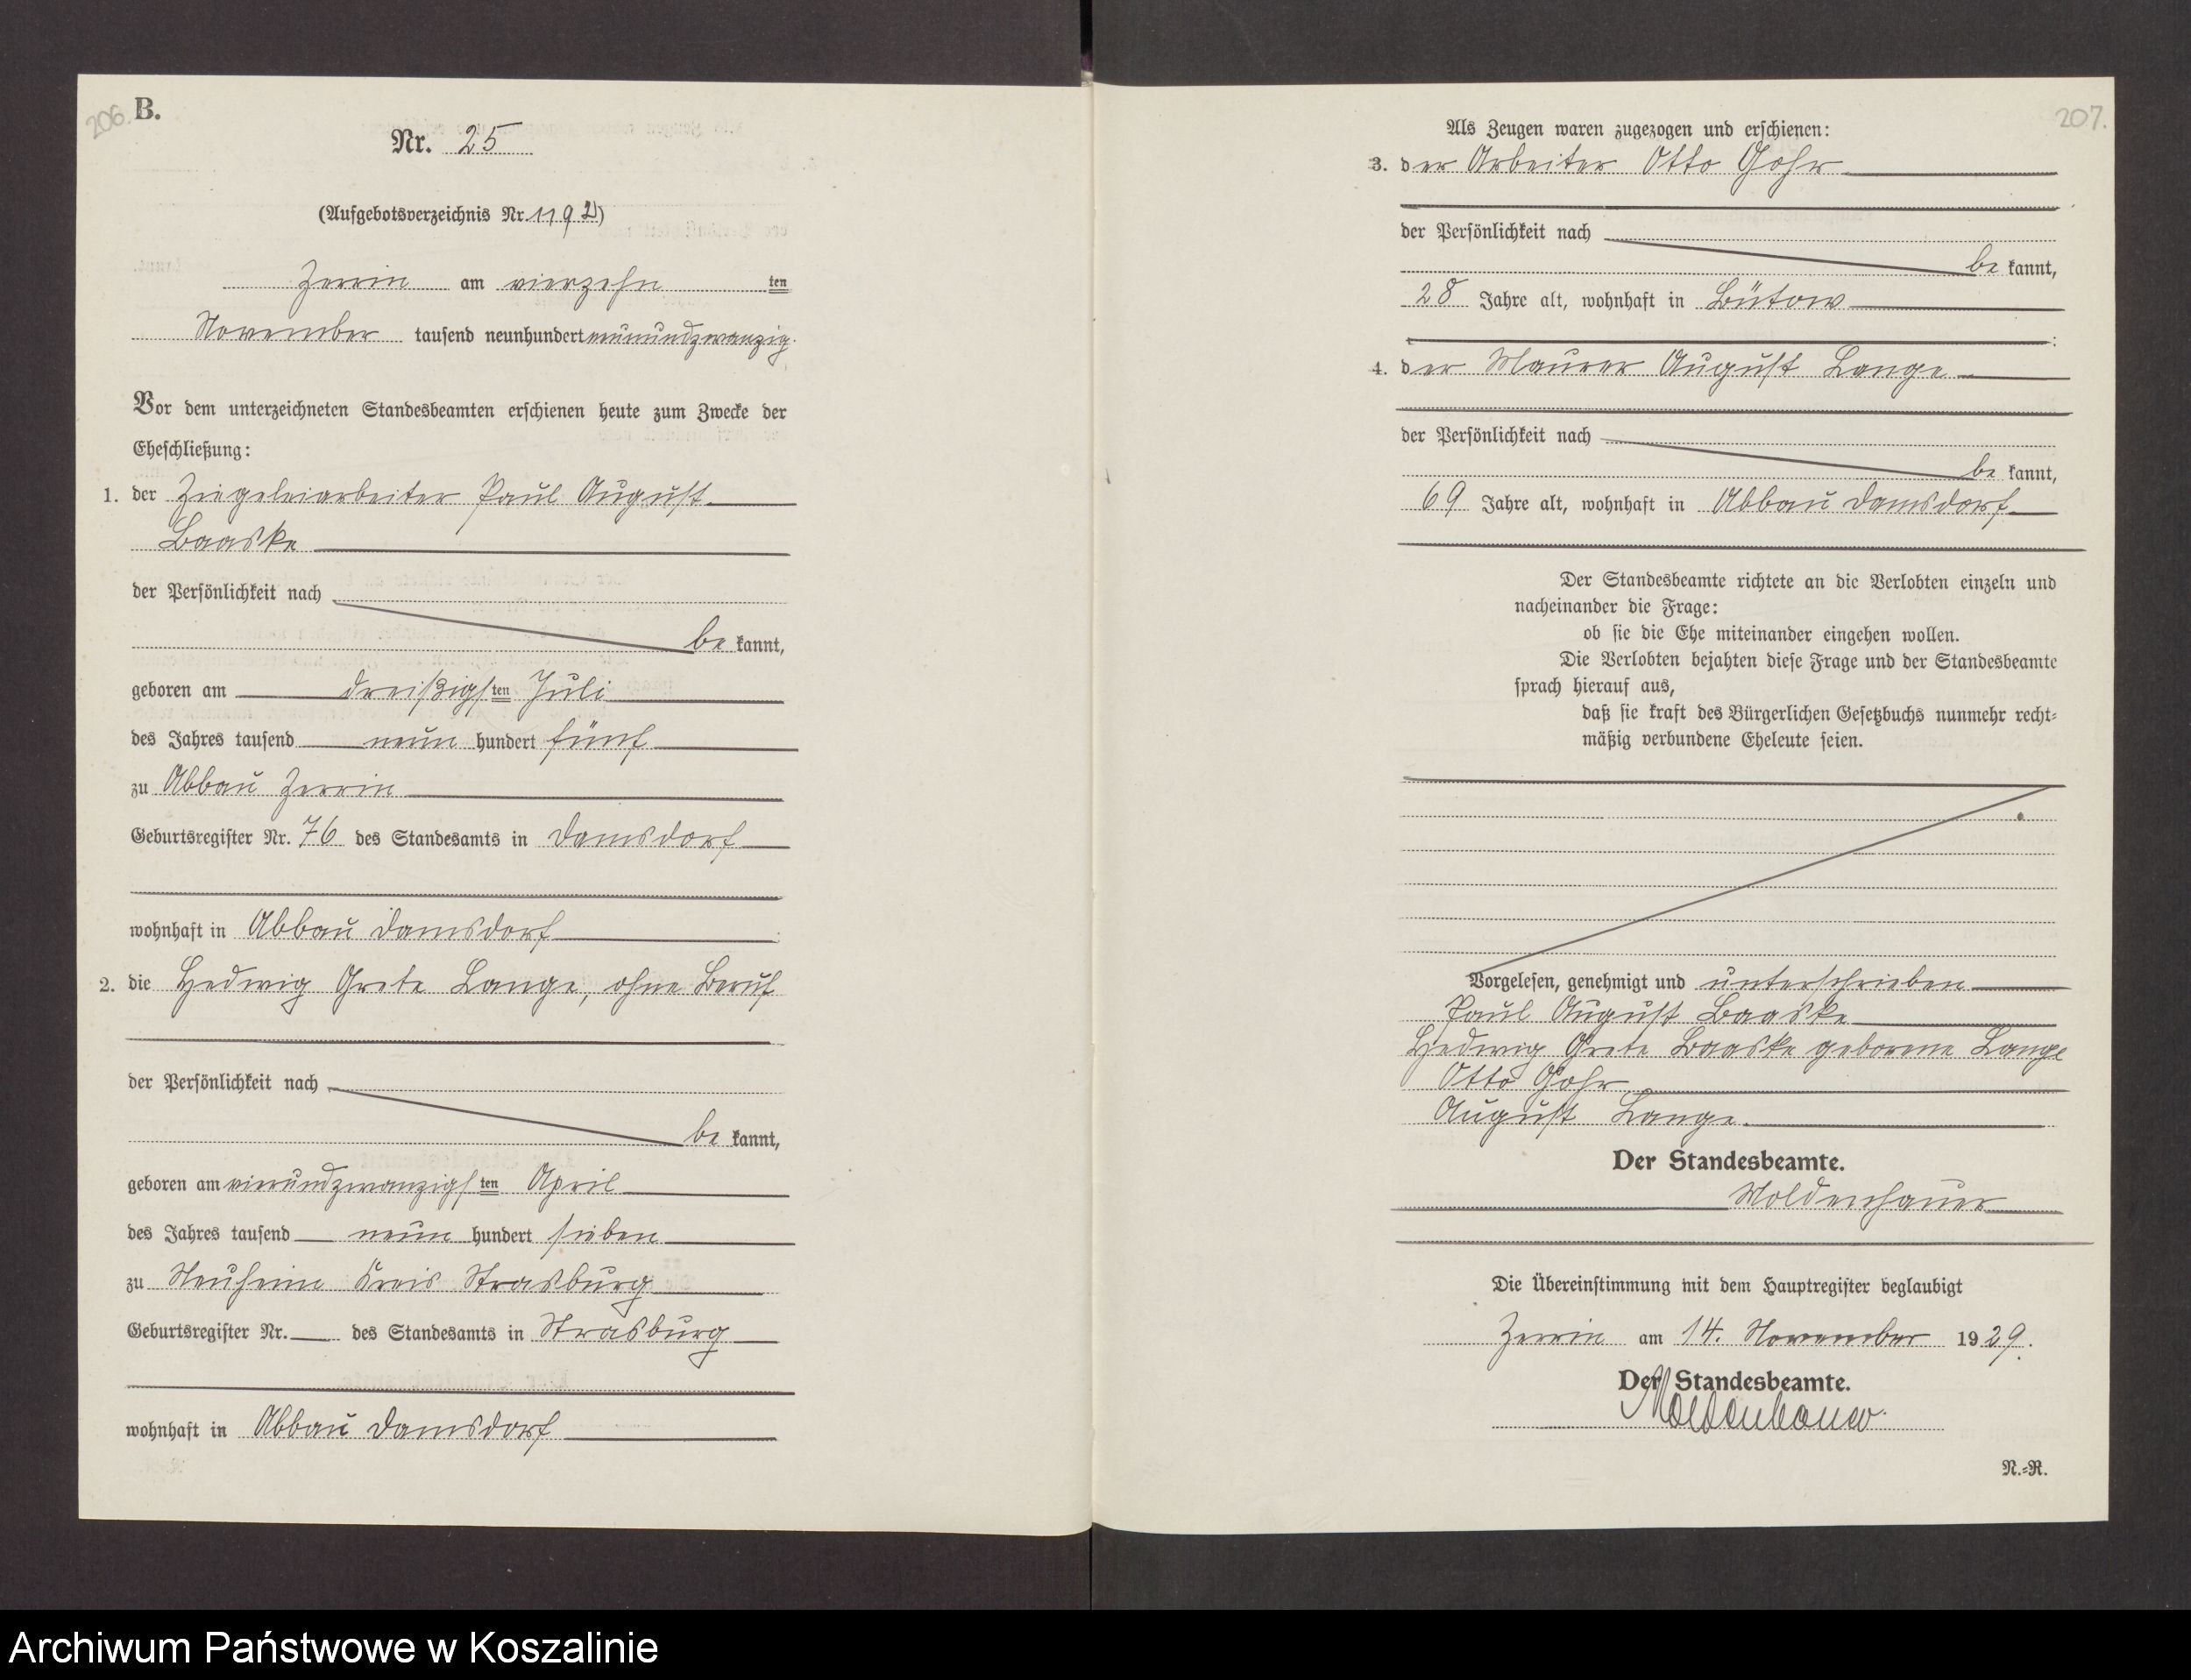 206.
B.
Nr. 25
(Aufgebotsverzeichnis Nr. 1192)
Zerrin am vierzehn ten
November tausend neunhundert neunundzwanzig.
Vor dem unterzeichneten Standesbeamten erschienen heute zum Zwecke der
Eheschließung:
1. der Ziegeleiarbeiter Paul August
Baaske
der Persönlichkeit nach
be kannt,
geboren am dreißigsten Juli
des Jahres tausend neun hundert fünf
zu Abbau Zerrin
Geburtsregister Nr. 76 des Standesamts in Damsdorf
wohnhaft in Abbau Damsdorf
2. die Hedwig Grete Lange, ohne Beruf
der Persönlichkeit nach
be kannt,
geboren am vierundzwanzigsten April
des Jahres tausend neun hundert sieben
zu Neuheim Kreis Strasburg
Geburtsregister Nr. des Standesamts in Strasburg
wohnhaft in Abbau Damsdorf
207.
Als Zeugen waren zugezogen und erschienen:
3. der Arbeiter Otto Gohr
der Persönlichkeit nach
be kannt,
28 Jahre alt, wohnhaft in Bütow
4. der Maurer August Lange
der Persönlichkeit nach
be kannt,
69 Jahre alt, wohnhaft in Abbau Damsdorf
Der Standesbeamte richtete an die Verlobten einzeln und
nacheinander die Frage:
ob sie die Ehe miteinander eingehen wollen.
Die Verlobten bejahten diese Frage und der Standesbeamte
sprach hierauf aus,
daß sie kraft des Bürgerlichen Gesetzbuchs nunmehr recht-
mäßig verbundene Eheleute seien.
Vorgelesen, genehmigt und unterschrieben
Paul August Baaske
Hedwig Grete Baaske geborene Lange
Otto Gohr
August Lange.
Der Standesbeamte.
Moldenhauer
Die Übereinstimmung mit dem Hauptregister beglaubigt
Zerrin am 14. November 1929.
Der Standesbeamte.
Moldenhauer.
N.-R.
Archiwum Państwowe w Koszalinie